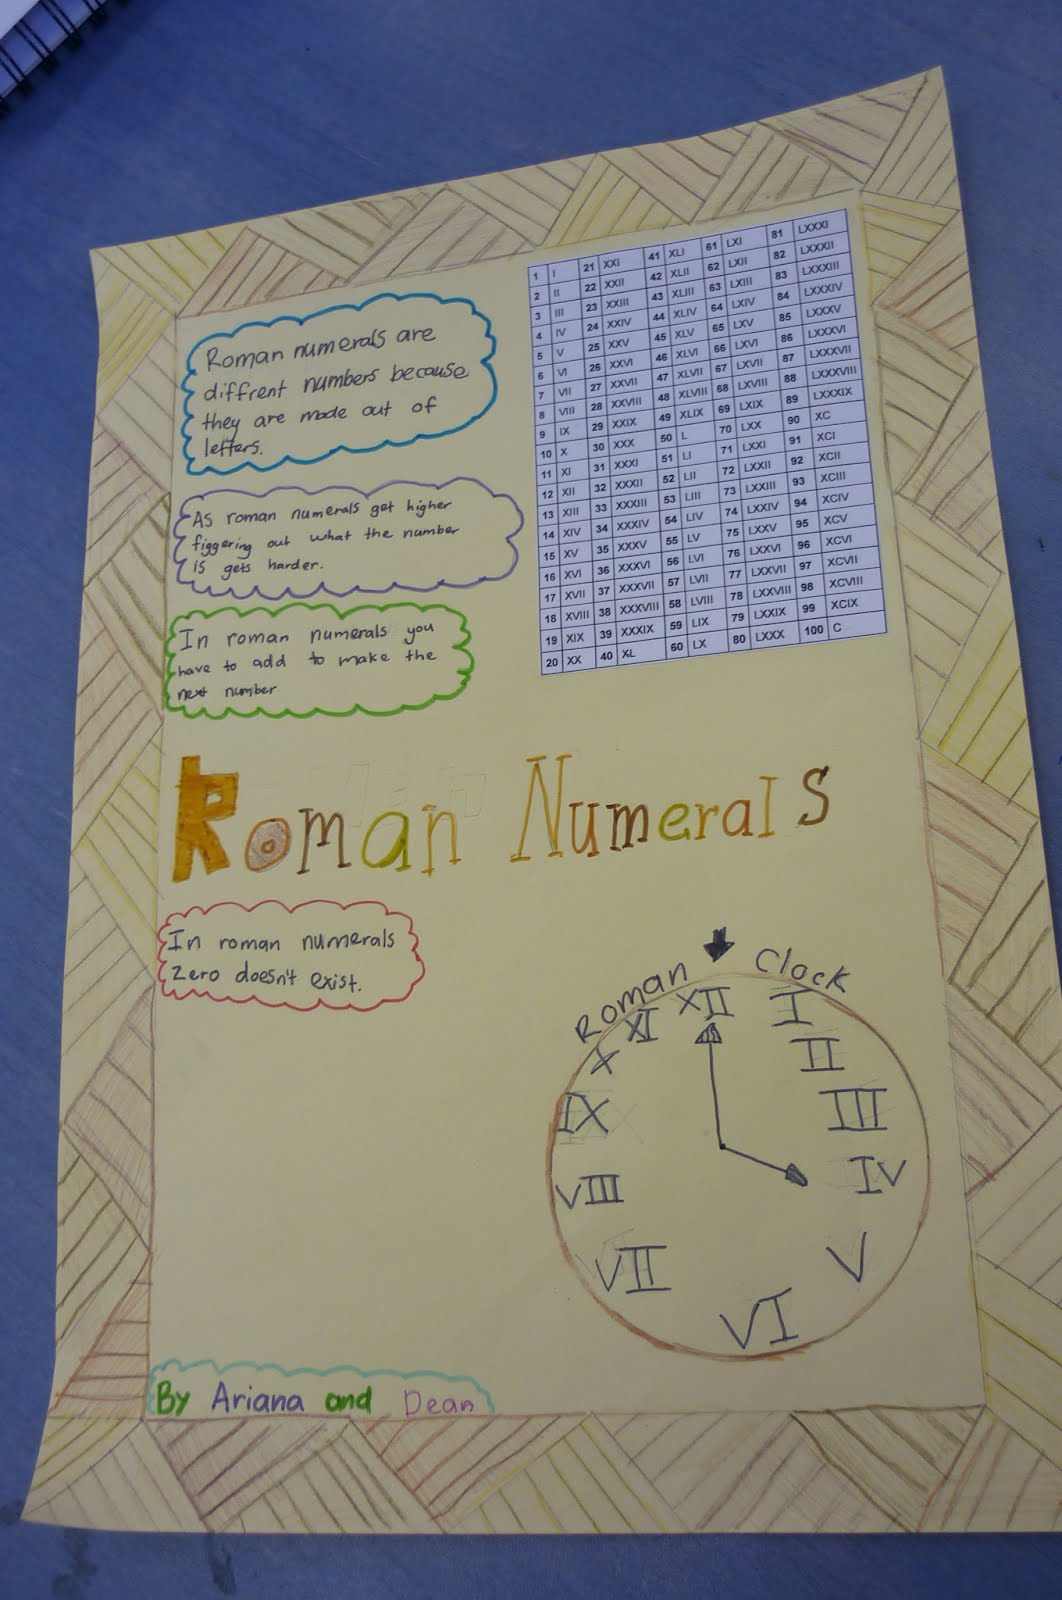 Roman numerals are
diffrent numbers because
they are made out of
letters.
As roman numerals get higher
figgering out what the number
is gets harder.
In roman numerals you
have to add to make the
next number
1 I 21 XXI 41 XLI 61 LXI 81 LXXXI
2 II 22 XXII 42 XLII 62 LXII 82 LXXXII
3 III 23 XXIII 43 XLIII 63 LXIII 83 LXXXIII
4 IV 24 XXIV 44 XLIV 64 LXIV 84 LXXXIV
5 V 25 XXV 45 XLV 65 LXV 85 LXXXV
6 VI 26 XXVI 46 XLVI 66 LXVI 86 LXXXVI
7 VII 27 XXVII 47 XLVII 67 LXVII 87 LXXXVII
8 VIII 28 XXVIII 48 XLVIII 68 LXVIII 88 LXXXVIII
9 IX 29 XXIX 49 XLIX 69 LXIX 89 LXXXIX
10 X 30 XXX 50 L 70 LXX 90 XC
11 XI 31 XXXI 51 LI 71 LXXI 91 XCI
12 XII 32 XXXII 52 LII 72 LXXII 92 XCII
13 XIII 33 XXXIII 53 LIII 73 LXXIII 93 XCIII
14 XIV 34 XXXIV 54 LIV 74 LXXIV 94 XCIV
15 XV 35 XXXV 55 LV 75 LXXV 95 XCV
16 XVI 36 XXXVI 56 LVI 76 LXXVI 96 XCVI
17 XVII 37 XXXVII 57 LVII 77 LXXVII 97 XCVII
18 XVIII 38 XXXVIII 58 LVIII 78 LXXVIII 98 XCVIII
19 XIX 39 XXXIX 59 LIX 79 LXXIX 99 XCIX
20 XX 40 XL 60 LX 80 LXXX 100 C
Roman Numerals
In roman numerals
zero doesn't exist.
Roman Clock
XII
I
II
III
IV
V
VI
VII
VIII
IX
X
XI
By Ariana and Dean